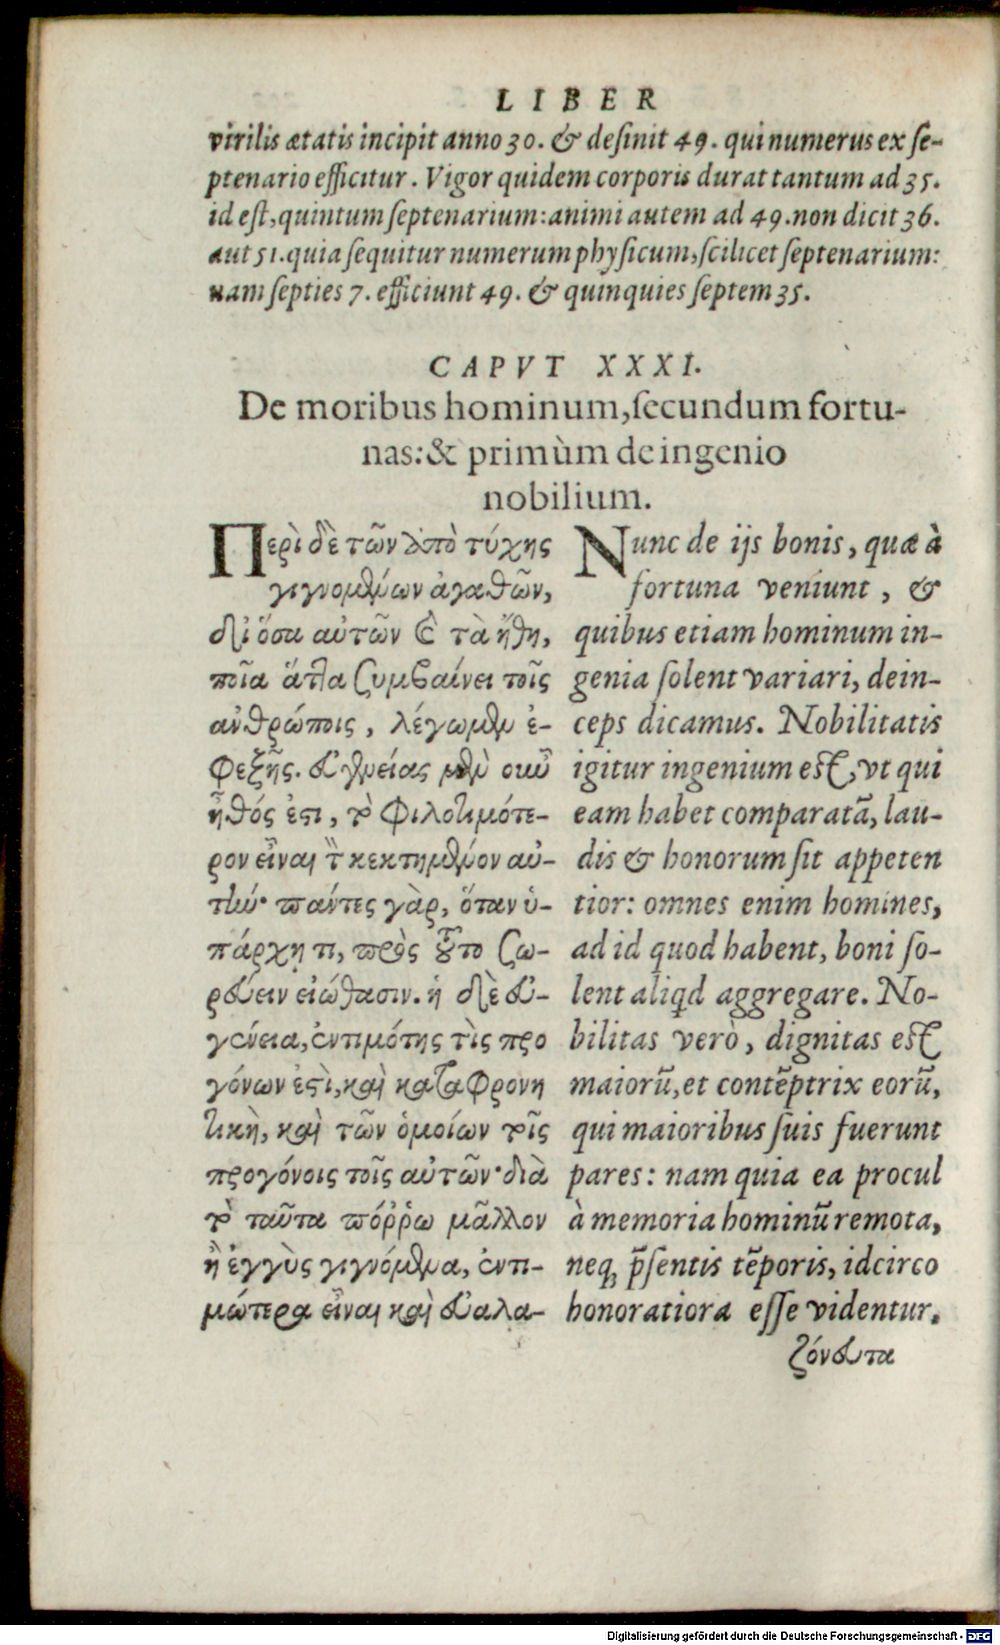 LIBER
virilis ætatis incipit anno 30. & desinit 49. qui numerus ex se-
ptenario efficitur. Vigor quidem corporis durat tantum ad 35.
id est, quintum septenarium: animi autem ad 49. non dicit 36.
aut 51. quia sequitur numerum physicum, scilicet septenarium:
nam septies 7. efficiunt 49. & quinquies septem 35.
CAPVT XXXI.
De moribus hominum, secundum fortu-
nas: & primùm de ingenio
nobilium.
Περὶ δὲ τῶν ἀπὸ τύχης
γιγνομένων ἀγαθῶν,
δι' ὅσα αὐτῶν καὶ τὰ ἤθη,
ποῖα ἄττα ζυμβαίνει τοῖς
ἀνθρώποις, λέγωμεν ἐ-
φεξῆς. εὐγενείας μὲν οὖν
ἦθός ἐστι, τὸ φιλοτιμότε-
ρον εἶναι τὸν κεκτημένον αὐ-
τήν· πάντες γὰρ, ὅταν ὑ-
πάρχῃ τι, πρὸς τοῦτο ζω-
ρεύειν εἰώθασιν. ἡ δὲ εὐ-
γένεια, ἐντιμότης τὶς προ
γόνων ἐστὶ, καὶ καταφρονη
τικὴ, καὶ τῶν ὁμοίων τοῖς
προγόνοις τοῖς αὐτῶν· διὰ
τὸ ταῦτα πόῤῥω μᾶλλον
ἢ ἐγγὺς γιγνόμενα, ἐντι-
μώτερα εἶναι καὶ εὐαλα-
Nunc de ijs bonis, quæ à
fortuna veniunt, &
quibus etiam hominum in-
genia solent variari, dein-
ceps dicamus. Nobilitatis
igitur ingenium est, vt qui
eam habet comparatā, lau-
dis & honorum sit appeten
tior: omnes enim homines,
ad id quod habent, boni so-
lent aliqd aggregare. No-
bilitas verò, dignitas est
maiorū, et contēptrix eorū,
qui maioribus suis fuerunt
pares: nam quia ea procul
à memoria hominū remota,
neq; p̄sentis tēporis, idcirco
honoratiora esse videntur.
ζόνευτα